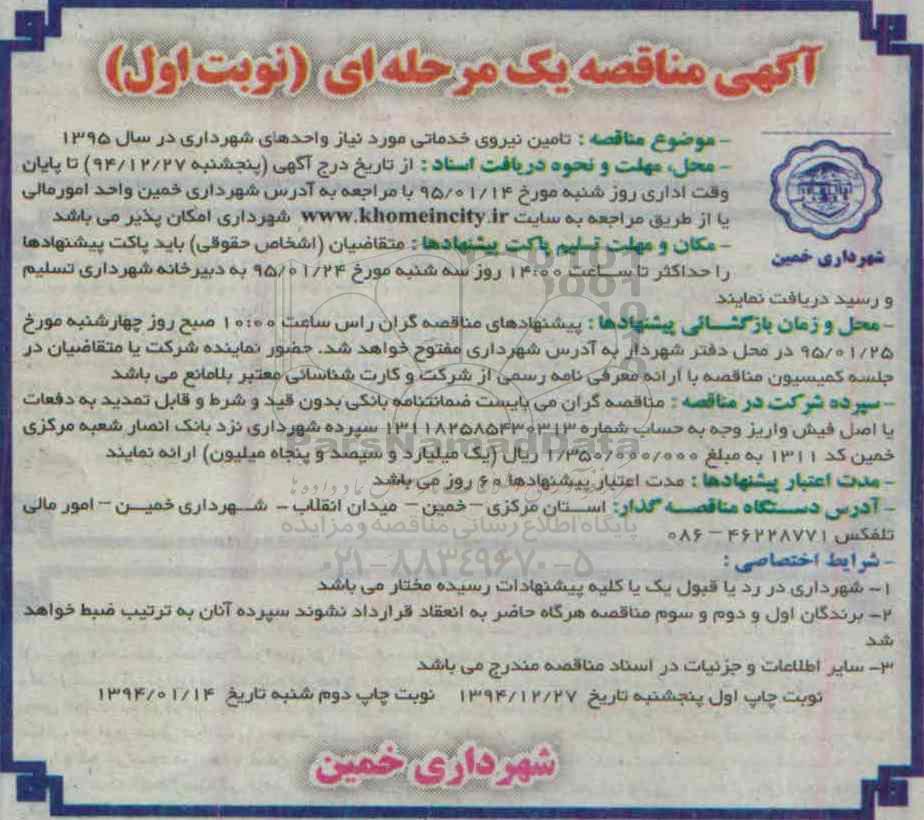 آگهی مناقصه یک مرحله ای (نوبت اول)
شهرداری خمین
- موضوع مناقصه : تامین نیروی خدماتی مورد نیاز واحدهای شهرداری در سال ۱۳۹۵
- محل، مهلت و نحوه دریافت اسناد : از تاریخ درج آگهی (پنجشنبه ۹۴/۱۲/۲۷) تا پایان
وقت اداری روز شنبه مورخ ۹۵/۰۱/۱۴ با مراجعه به آدرس شهرداری خمین واحد امورمالی
یا از طریق مراجعه به سایت www.khomeincity.ir شهرداری امکان پذیر می باشد
- مکان و مهلت تسلیم پاکت پیشنهادها : متقاضیان (اشخاص حقوقی) باید پاکت پیشنهادها
را حداکثر تا ساعت ۱۴:۰۰ روز سه شنبه مورخ ۹۵/۰۱/۲۴ به دبیرخانه شهرداری تسلیم
و رسید دریافت نمایند
- محل و زمان بازگشائی پیشنهادها : پیشنهادهای مناقصه گران راس ساعت ۱۰:۰۰ صبح روز چهارشنبه مورخ
۹۵/۰۱/۲۵ در محل دفتر شهردار به آدرس شهرداری مفتوح خواهد شد. حضور نماینده شرکت یا متقاضیان در
جلسه کمیسیون مناقصه با ارائه معرفی نامه رسمی از شرکت و کارت شناسائی معتبر بلامانع می باشد
- سپرده شرکت در مناقصه : مناقصه گران می بایست ضمانتنامه بانکی بدون قید و شرط و قابل تمدید به دفعات
یا اصل فیش واریز وجه به حساب شماره ۱۳۱۱۸۲۵۸۵۴۳۰۳۱۳ سپرده شهرداری نزد بانک انصار شعبه مرکزی
خمین کد ۱۳۱۱ به مبلغ ۱/۳۵۰/۰۰۰/۰۰۰ ریال (یک میلیارد و سیصد و پنجاه میلیون) ارائه نمایند
- مدت اعتبار پیشنهادها : مدت اعتبار پیشنهادها ۶۰ روز می باشد
- آدرس دستگاه مناقصه گذار: استان مرکزی – خمین – میدان انقلاب - شهرداری خمین – امور مالی
تلفکس ۴۶۲۲۸۷۷۱ – ۰۸۶
- شرایط اختصاصی :
۱- شهرداری در رد یا قبول یک یا کلیه پیشنهادات رسیده مختار می باشد
۲- برندگان اول و دوم و سوم مناقصه هرگاه حاضر به انعقاد قرارداد نشوند سپرده آنان به ترتیب ضبط خواهد
شد
۳- سایر اطلاعات و جزئیات در اسناد مناقصه مندرج می باشد
نوبت چاپ اول پنجشنبه تاریخ ۱۳۹۴/۱۲/۲۷ نوبت چاپ دوم شنبه تاریخ ۱۳۹۴/۰۱/۱۴
شهرداری خمین
ParsNamadData
پایگاه اطلاع رسانی مناقصه و مزایده
۰۲۱-۸۸۳۴۹۶۷۰-۵